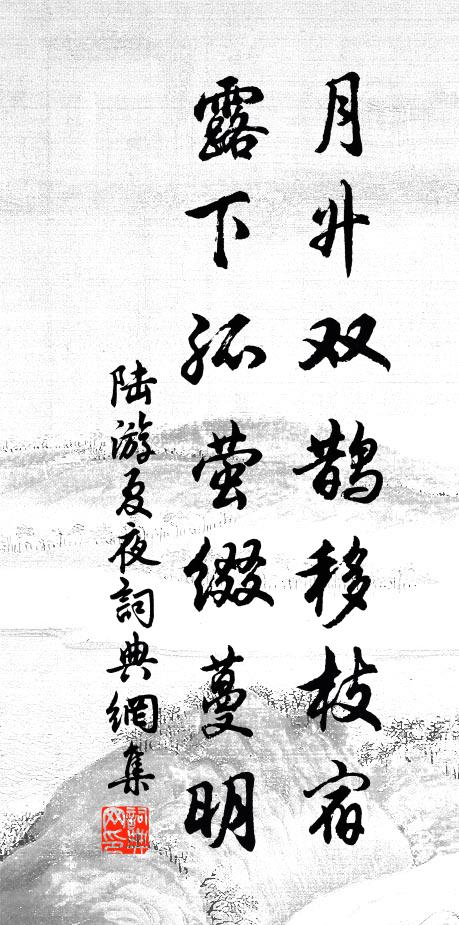 月升双鹊移枝宿
露下孤萤缀蔓明
陆游夏夜詞典網集